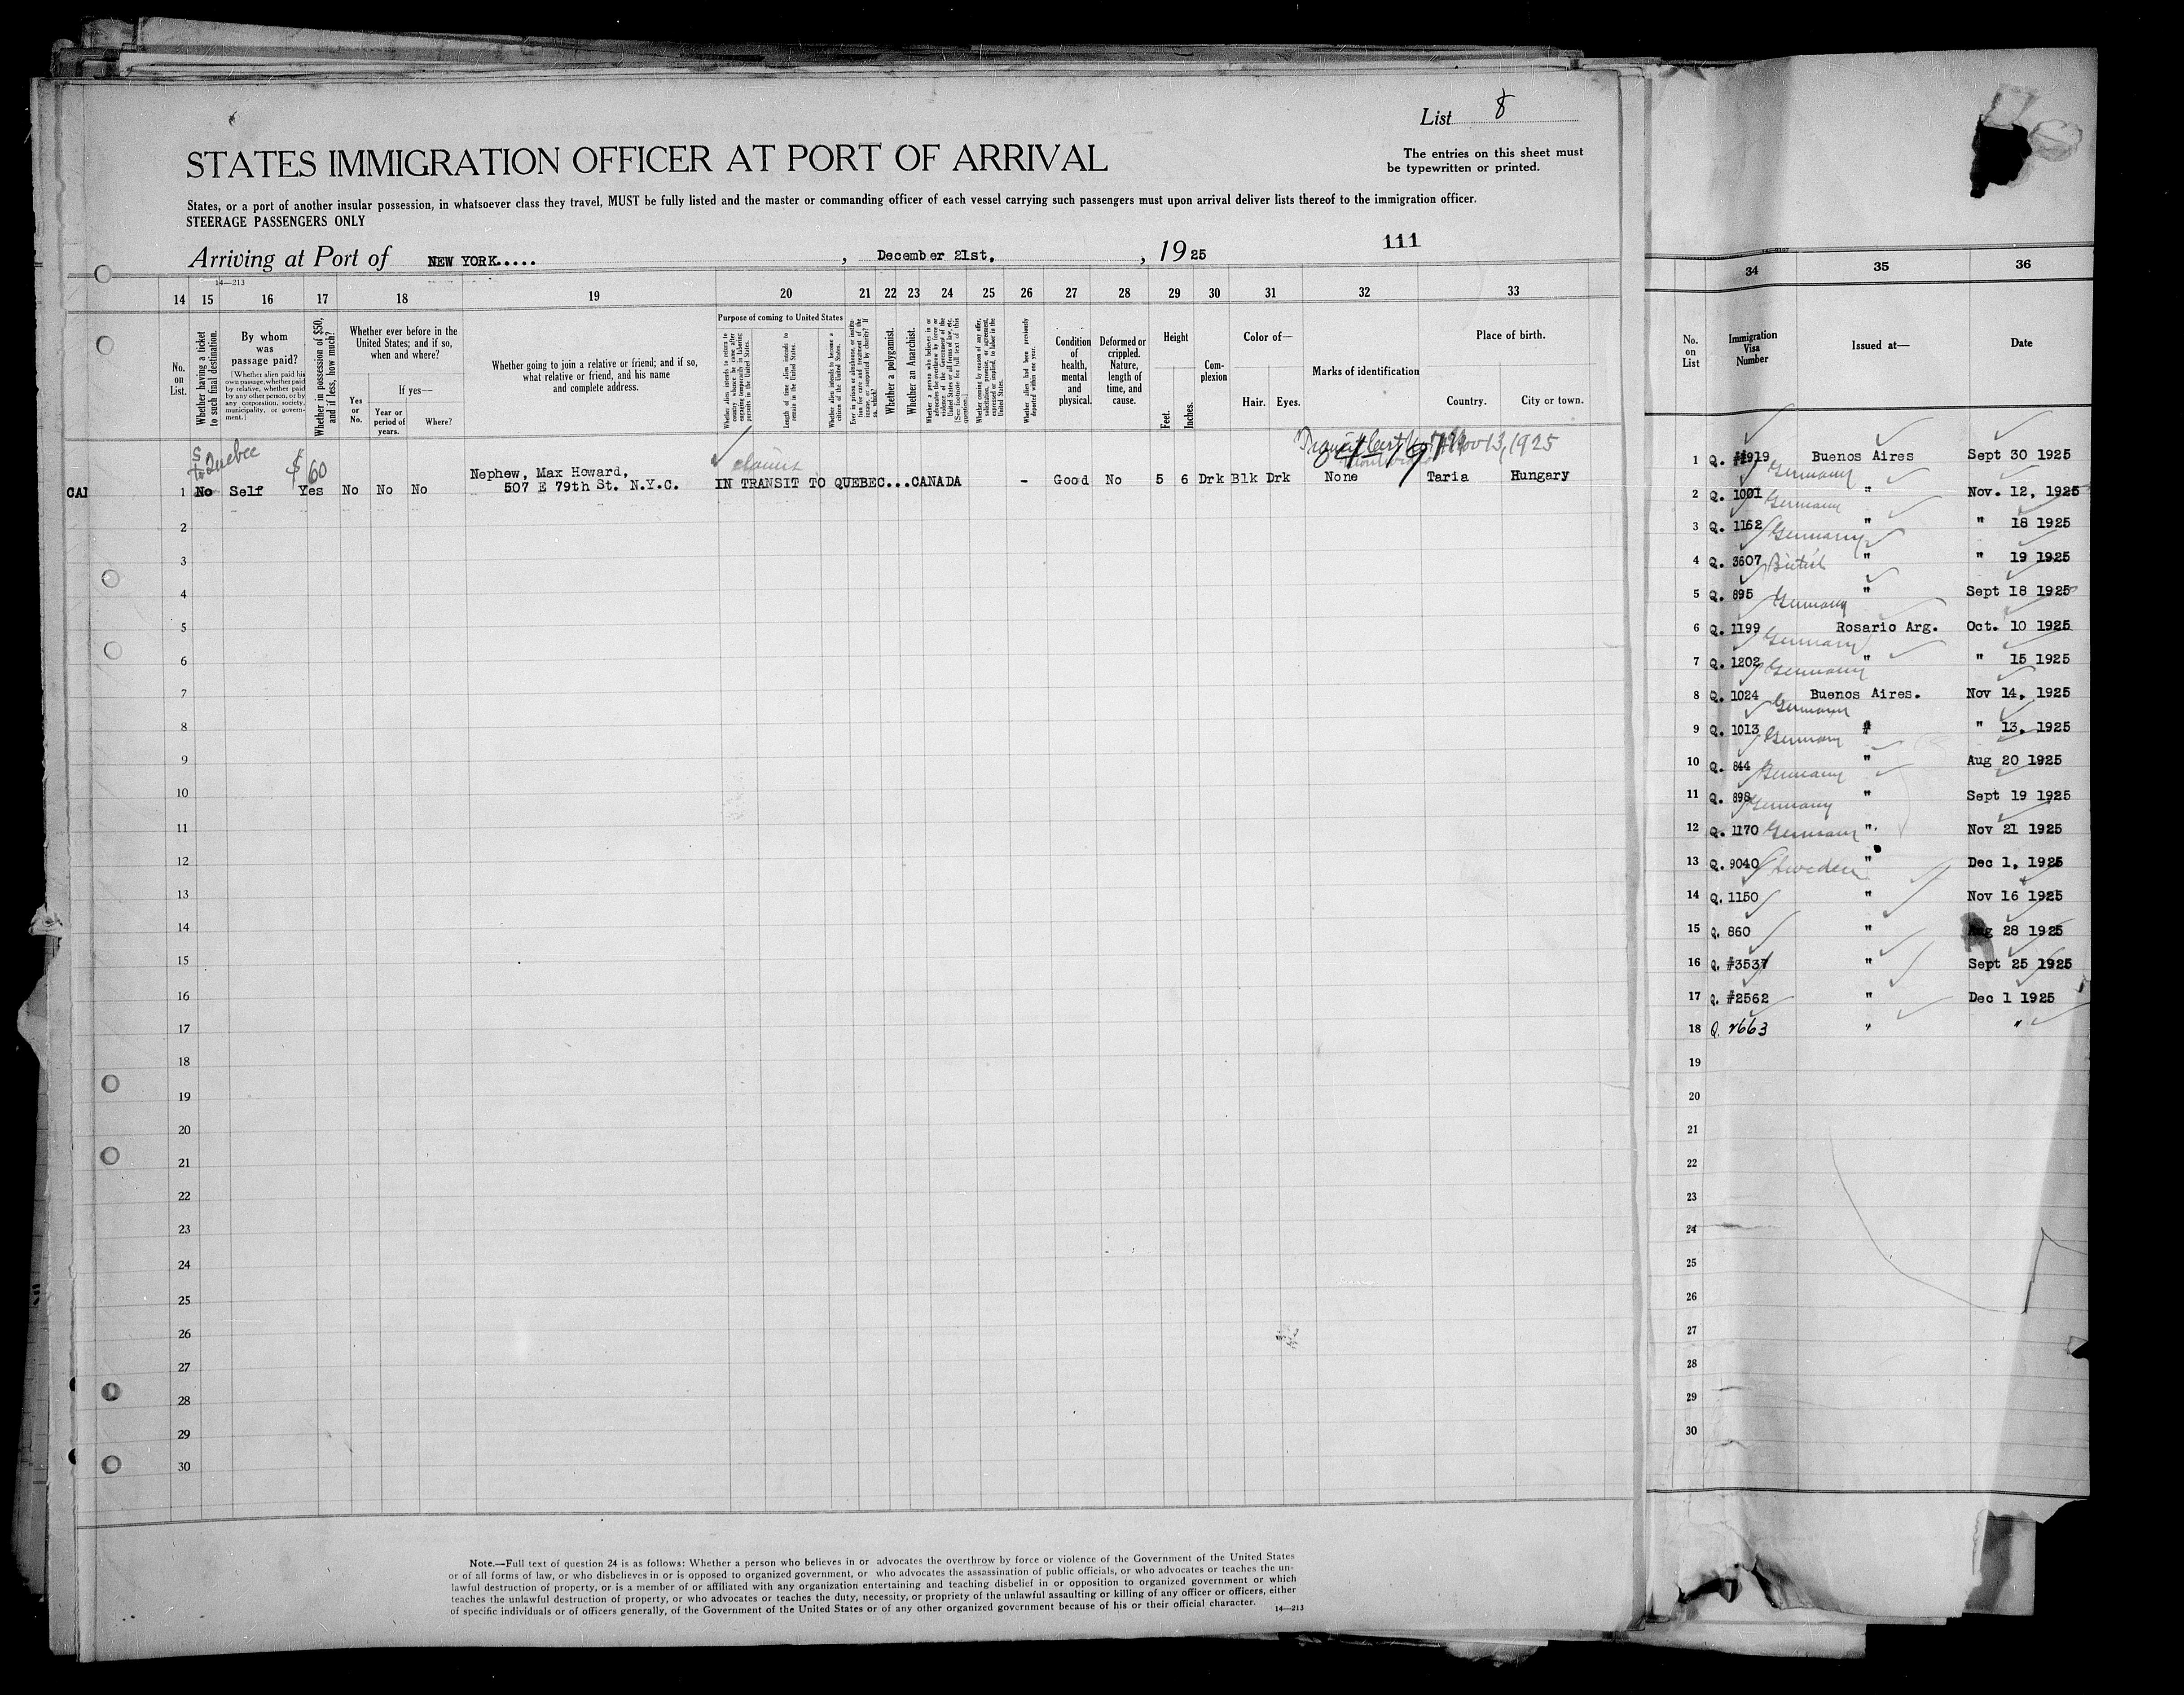 List 8
STATES IMMIGRATION OFFICER AT PORT OF ARRIVAL
The entries on this sheet must
be typewritten or printed.
States, or a port of another insular possession, in whatsoever class they travel, MUST be fully listed and the master or commanding officer of each vessel carrying such passengers must upon arrival deliver lists thereof to the immigration officer.
STEERAGE PASSENGERS ONLY
111
Arriving at Port of NEW YORK....., December 21st, , 1925
14—213
14 15 16 17 18 19 20 21 22 23 24 25 26 27 28 29 30 31 32 33
No. on List.
Whether having a ticket to such final destination.
By whom was passage paid?
[Whether alien paid his own passage, whether paid by relative, whether paid by any other person, or by any corporation, society, municipality, or government.]
Whether in possession of $50, and if less, how much?
Whether ever before in the United States; and if so, when and where?
Yes or No.
If yes—
Year or period of years.
Where?
Whether going to join a relative or friend; and if so, what relative or friend, and his name and complete address.
Purpose of coming to United States
Whether alien intends to return to country whence he came after engaging temporarily in laboring pursuits in the United States.
Length of time alien intends to remain in the United States.
Whether alien intends to become a citizen of the United States.
Ever in prison or almshouse, or institution for care and treatment of the insane, or supported by charity? If so, which?
Whether a polygamist.
Whether an Anarchist.
Whether a person who believes in or advocates the overthrow by force or violence of the Government of the United States or all forms of law, etc. [See footnote for full text of this question.]
Whether coming by reason of any offer, solicitation, promise, or agreement, expressed or implied, to labor in the United States.
Whether alien had been previously deported within one year.
Condition of health, mental and physical.
Deformed or crippled. Nature, length of time, and cause.
Height
Feet.
Inches.
Complexion
Color of—
Hair. Eyes.
Marks of identification
Place of birth.
Country.
City or town.
to Quebec $60 claims Nov 13, 1925
CAI 1 No Self Yes No No No Nephew, Max Howard,
507 E 79th St. N.Y.C. IN TRANSIT TO QUEBEC...CANADA - Good No 5 6 Drk Blk Drk None Taria Hungary
2
3
4
5
6
7
8
9
10
11
12
13
14
15
16
17
18
19
20
21
22
23
24
25
26
27
28
29
30
Note.—Full text of question 24 is as follows: Whether a person who believes in or advocates the overthrow by force or violence of the Government of the United States
or of all forms of law, or who disbelieves in or is opposed to organized government, or who advocates the assassination of public officials, or who advocates or teaches the un-
lawful destruction of property, or is a member of or affiliated with any organization entertaining and teaching disbelief in or opposition to organized government or which
teaches the unlawful destruction of property, or who advocates or teaches the duty, necessity, or propriety of the unlawful assaulting or killing of any officer or officers, either
of specific individuals or of officers generally, of the Government of the United States or of any other organized government because of his or their official character.
14—213
34 35 36
No. on List
Immigration Visa Number
Issued at—
Date
1 Q. #1919 Germany Buenos Aires Sept 30 1925
2 Q. 1001 Germany " Nov. 12, 1925
3 Q. 1162 Germany " " 18 1925
4 Q. 3607 British " " 19 1925
5 Q. 895 Germany " Sept 18 1925
6 Q. 1199 Germany Rosario Arg. Oct. 10 1925
7 Q. 1202 Germany " " 15 1925
8 Q. 1024 Germany Buenos Aires. Nov 14, 1925
9 Q. 1013 Germany " " 13, 1925
10 Q. 844 Germany " Aug 20 1925
11 Q. 898 Germany " Sept 19 1925
12 Q. 1170 Germany " Nov 21 1925
13 Q. 9040 Sweden " Dec 1, 1925
14 Q. 1150 " Nov 16 1925
15 Q. 860 " Aug 28 1925
16 Q. #3537 " Sept 25 1925
17 Q. #2562 " Dec 1 1925
18 Q. 2663 " "
19
20
21
22
23
24
25
26
27
28
29
30